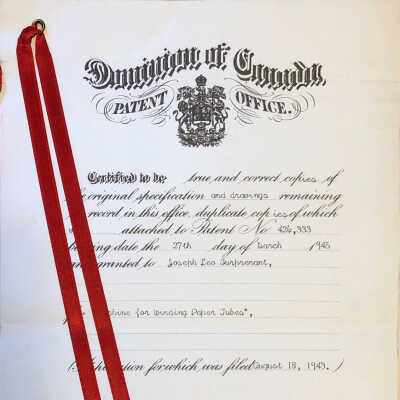 Dominion of Canada
PATENT OFFICE.
Certified to be true and correct copies of
original specification and drawings remaining
record in this office, duplicate copies of which
attached to Patent No 426,333
date the 27th day of March 1945
granted to Joseph Leo Surprenant,
for Winding Paper Tubes",
for which was filed August 18, 1943. )